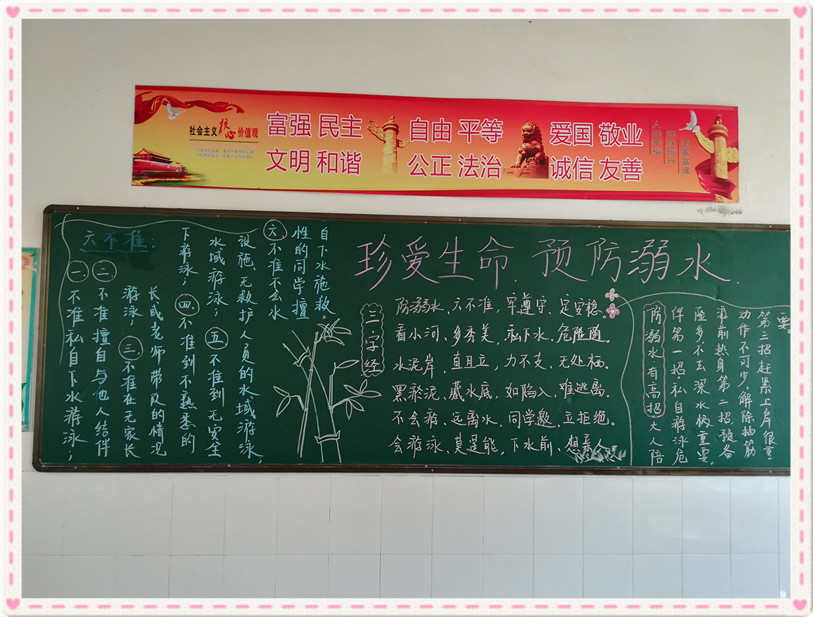 社会主义核心价值观
富强 民主 自由 平等 爱国 敬业
文明 和谐 公正 法治 诚信 友善
珍爱生命 预防溺水
六不准:
一 不准私自下水游泳;
二 不准擅自与他人结伴
游泳;三 不准在无家长
长或老师带队的情况
下游泳;四 不准到不熟悉的
水域游泳;五 不准到无安全
设施、无救护人员的水域游泳;
六 不准不会水
性的同学擅
自下水施救。
三字经
防溺水、六不准,牢遵守、定安稳。
看小河、多秀美、私下水、危险
水泥岸、直且立,力不支、无处栖。
黑淤泥、藏水底、如陷入、难逃离。
不会游、远离水、同学邀、立拒绝。
会游泳、莫逞能、下水前、想亲人
防溺水有高招 大人陪
伴第一招 私自游泳危
险多不去深水 重要
游前热身第二招 预备
动作不可少,解除抽筋
第三招 赶紧上岸很重
要。